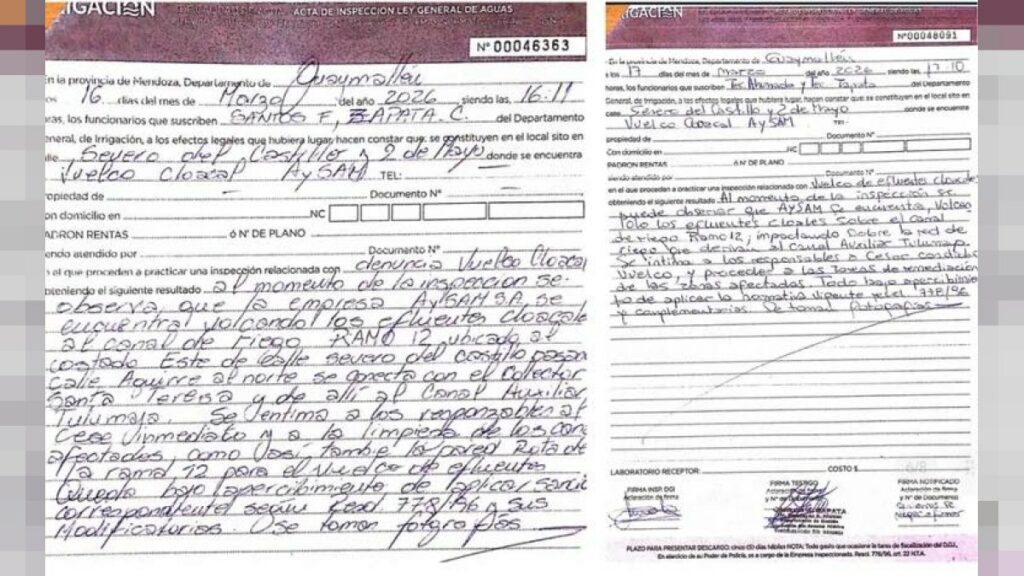 IGACIÓN
ACTA DE INSPECCIÓN LEY GENERAL DE AGUAS
Nº 00046363
En la provincia de Mendoza, Departamento de Guaymallén
os 16 días del mes de Marzo del año 2026 siendo las, 16:11
oras, los funcionarios que suscriben SANTOS F, ZAPATA. C. del Departamento
eneral, de Irrigación, a los efectos legales que hubiera lugar, hacen constar que, se constituyen en el local sito en
alle, Severo del Castillo y 2 de Mayo donde se encuentra
Vuelco Cloacal AySAM TEL:
opiedad de Documento Nº
on domicilio en NC
ADRON RENTAS ó Nº DE PLANO
endo atendido por Documento Nº
n el que proceden a practicar una inspección relacionada con denuncia Vuelco Cloacal
bteniendo el siguiente resultado al momento de la inspeccion se
observa que la empresa AySAM SA se
encuentra volcando los efluentes cloacale
al canal de riego RAMO 12, ubicado al
costado Este de calle severo del castillo pasan
calle Aguirre al norte se conecta con el Colector
Santa Teresa y de allí al Canal Auxiliar
Tulumaja. Se intima a los responsables al
Cese inmediato y a la limpieza de los can
afectados, como así tambie la pared Rota de
la ramal 12 para el Vuelco de efluentes
Queda bajo apercibimiento de aplicar sanció
correspondiente segun resol. 778/96 y sus
Modificatorias Se toman fotografías
IGACIÓN
Nº 00048091
En la provincia de Mendoza, Departamento de Guaymallén
a los 17 días del mes de Marzo del año 2026 siendo las, 17:10
horas, los funcionarios que suscriben Tec Zapata del Departamento
General, de Irrigación, a los efectos legales que hubiera lugar, hacen constar que, se constituyen en el local sito en
Severo del Castillo y 2 de Mayo donde se encuentra
Vuelco Cloacal AySAM TEL:
propiedad de Documento Nº
Con domicilio en NC
PADRON RENTAS ó Nº DE PLANO
siendo atendido por Documento Nº
en el que proceden a practicar una inspección relacionada con Vuelco de efluentes cloacales
obteniendo el siguiente resultado Al momento de la inspección se
puede observar que AySAM se encuentra, Volcan
los efluentes cloacales sobre el canal
de riego Ramo 12, impactando sobre la red de
riego que derivan al canal Auxiliar Tulumaya.
Se intima a los responsables a Cesar
Vuelco, y proceder a las tareas de remediación
de las zonas afectadas. Todo bajo apercibimien
to de aplicar la normativa vigente resol 778/96
y complementarias. Se toman fotografías
LABORATORIO RECEPTOR: COSTO $
FIRMA INSP. DGI
Aclaración de firma
FIRMA TESTIGO
Aclaración
y Nº de Documento
FIRMA NOTIFICADO
Aclaración de firma
y Nº de Documento
PLAZO PARA PRESENTAR DESCARGO: cinco (5) días hábiles NOTA: Todo gasto que ocasione la tarea de fiscalización del D.G.I.,
En ejercicio de su Poder de Policía, es a cargo de la Empresa Inspeccionada. Resol. 778/96, art. 22 N.T.A.